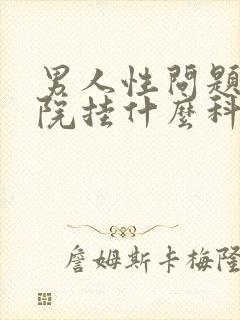 男人性問題
院挂什麼科
詹姆斯卡梅隆